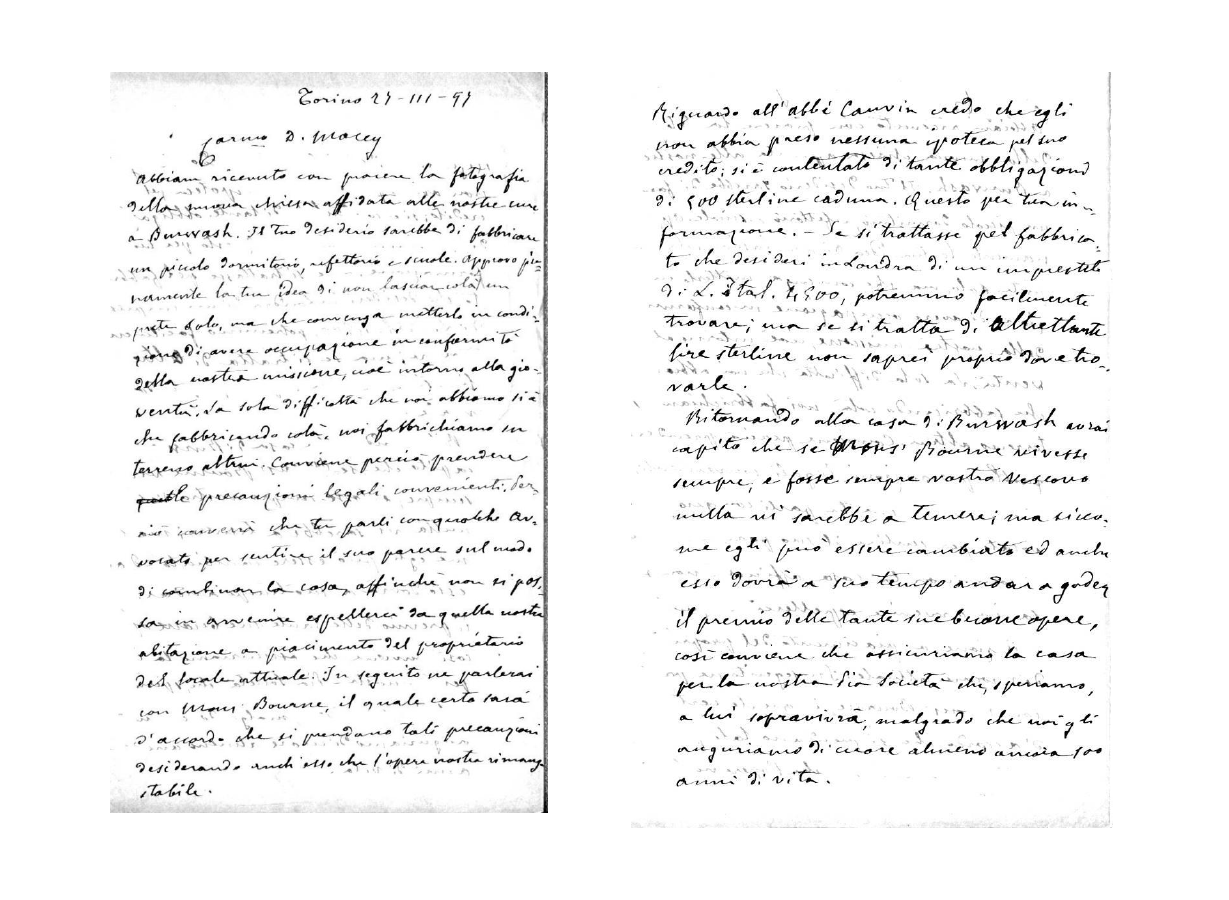 Torino 27-III-97
Carmo D. Macey
Abbiam ricevuto con piacere la fotografia
della nuova chiesa affidata alle nostre cure
a Burwash. Il tuo desiderio sarebbe di fabbricare
un piccolo dormitorio, refettorio e scuole. Approvo pie-
namente la tua idea di non lasciar colà un
prete solo, ma che convenga metterlo in condi-
zione di avere occupazione in conformità
della nostra missione, cioè intorno alla gio-
ventù. La sola difficoltà che noi abbiamo si è
che fabbricando colà, noi fabbrichiamo in
terreno altrui. Conviene perciò prendere
quelle precauzioni legali convenienti. Per-
ciò converrà che tu parli con qualche av-
vocato per sentire il suo parere sul modo
di combinar la cosa, affinchè non si pos-
sa in avvenire espellerci da quella nostra
abitazione a piacimento del propriétario
del locale attuale. In seguito ne parlerai
con Mons Bourne, il quale certo sarà
d'accordo che si prendano tali precauzioni
desiderando anch'esso che l'opera nostra rimanga
stabile.
Riguardo all'abbé Cauvin credo che egli
non abbia preso nessuna ipoteca pel suo
credito; si è contentato di tante obbligazioni
di 500 sterline caduna. Questo per tua in-
formazione. – Se si trattasse pel fabbrica-
to che desideri in Londra di un imprestito
di L. Ital. 4500, potremmo facilmente
trovare; ma se si tratta di altrettante
lire sterline non saprei proprio dove tro-
varle.
Ritornando alla casa di Burwash avrai
capito che se Mons' Bourne vivesse
sempre, e fosse sempre vostro Vescovo
nulla vi sarebbe a temere; ma sicco-
me egli può essere cambiato ed anche
esso dovrà a suo tempo andar a goder
il premio delle tante sue buone opere,
così conviene che assicuriamo la casa
per la nostra Pia Società che, speriamo,
a lui sopravivrà, malgrado che noi gli
auguriamo di cuore almeno ancora 100
anni di vita.